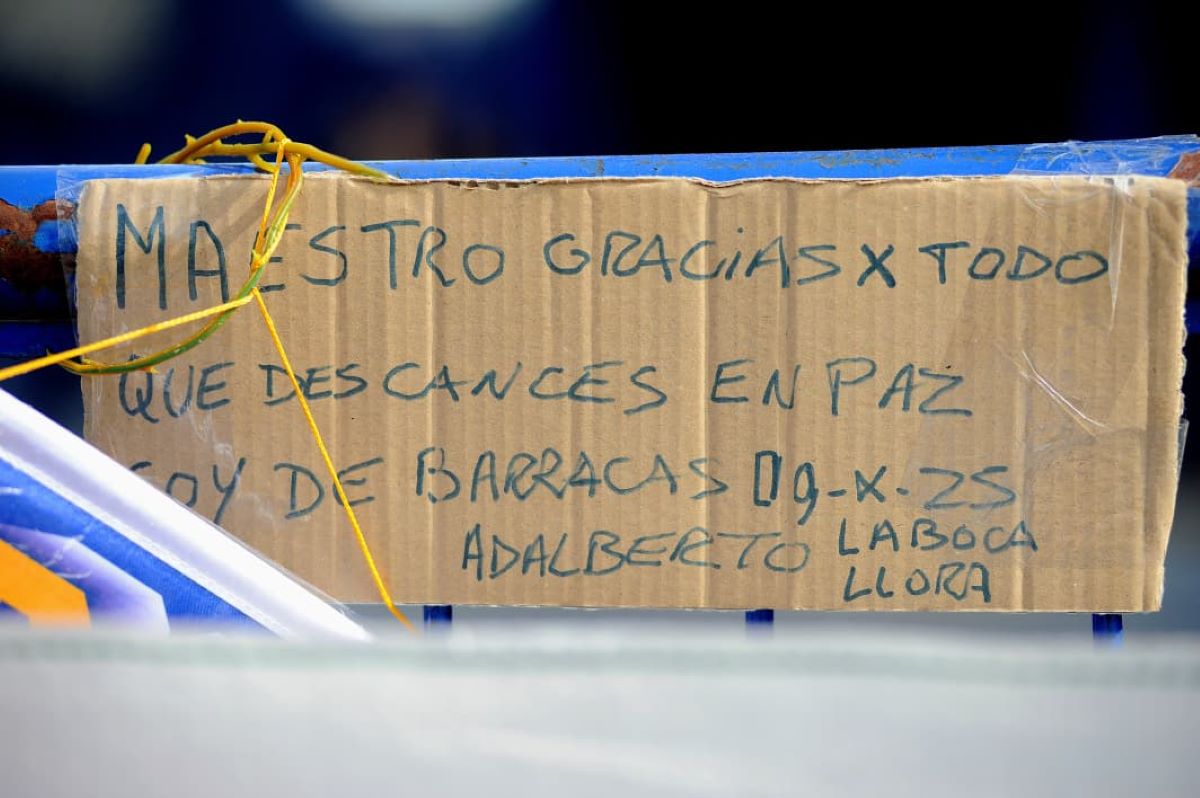 MAESTRO GRACIAS X TODO
QUE DESCANCES EN PAZ
SOY DE BARRACAS 09-X-25
ADALBERTO LA BOCA
LLORA